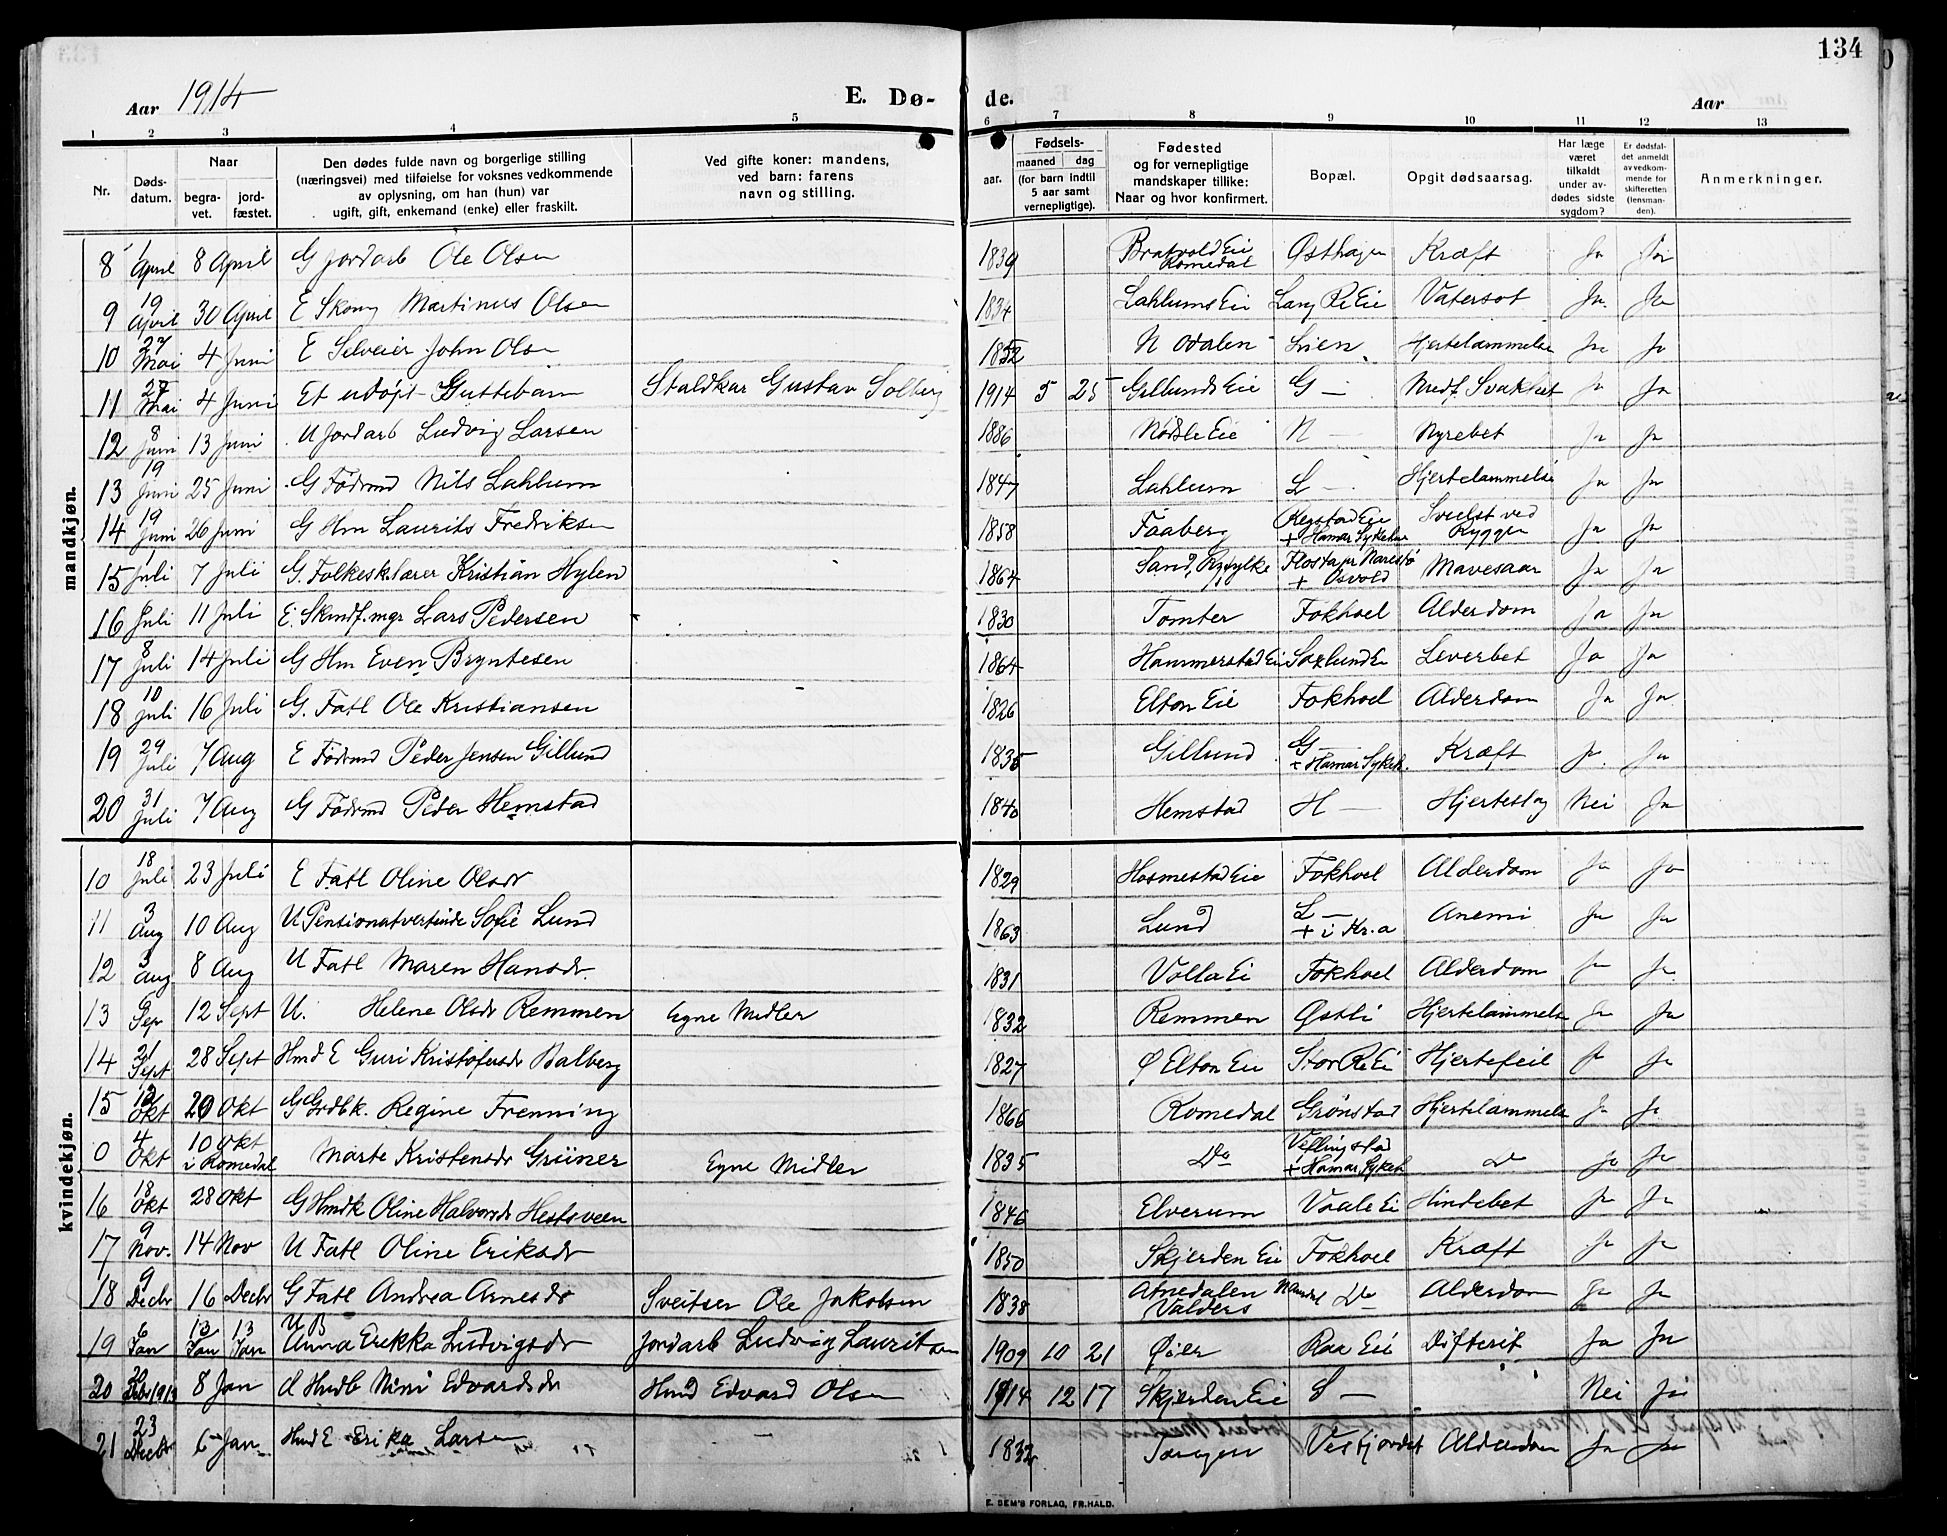 134
Aar 1914
E. Dø-
de.
Aar
1 2 3 4 5 6 7 8 9 10 11 12 13
Nr.
Døds-
datum.
Naar
begra-
vet.
jord-
fæstet.
Den dødes fulde navn og borgerlige stilling
(næringsvei) med tilføielse for voksnes vedkommende
av oplysning, om han (hun) var
ugift, gift, enkemand (enke) eller fraskilt.
Ved gifte koner: mandens,
ved barn: farens
navn og stilling.
Fødsels-
aar.
maaned dag
(for barn indtil
5 aar samt
vernepligtige).
Fødested
og for vernepligtige
mandskaper tillike:
Naar og hvor konfirmert.
Bopæl.
Opgit dødsaarsag.
Har læge
været
tilkaldt
under av-
dødes sidste
sygdom?
Er dødsfal-
det anmeldt
av vedkom-
mende for
skifteretten
(lensman-
den).
Anmerkninger.
mandkjøn.
8 1 April 8 April G Jordarb Ole Olsen 1839 Bratvold Eie Romedal Østhagen Kræft Ja Ja
9 19 April 30 April E Skom Martinus Olsen 1834 Lahlums Eie Lang Re Eie Vatersot Ja Ja
10 27 Mai 4 Juni E Selveier John Olsen 1852 N Odalen Lien Hjertelammelse Ja Ja
11 27 Mai 4 Juni Et udøpt Guttebarn Staldkar Gustav Solberg 1914 5 25 Gillunds Eie G — Medf. Svakhet Ja Ja
12 8 Juni 13 Juni U Jordarb Ludvig Larsen 1886 Nøtsle Eie N — Nyrebet Ja Ja
13 19 Juni 25 Juni G Fødrmd Nils Lahlum 1847 Lahlum L — Hjertelammelse Ja Ja
14 19 Juni 26 Juni G Hm Laurits Fredriksen 1858 Faaberg + Hamar Sykehus Svulst ved Ryggen Ja Ja
15 1 Juli 7 Juli G. Folkesk.lærer Kristian Hylen 1864 Sand, Ryfylke Flosta pr Narestø + Osvold Mavesaar Ja Ja
16 Juli 11 Juli E. Skindf.mgr Lars Pedersen 1830 Tomter Fokhoel Alderdom Ja Ja
17 8 Juli 14 Juli G Hm Even Bryntesen 1864 Hammerstad Ei Sælund Ei Leverbet Ja Ja
18 10 Juli 16 Juli G. Fatl Ole Kristiansen 1826 Elton Eie Fokhoel Alderdom Ja Ja
19 29 Juli 7 Aug E Fødrmd Peder Jensen Gillund 1835 Gillund G — + Hamar Sykeh. Kræft Ja Ja
20 31 Juli 7 Aug G Fødrmd Peder Hemstad 1840 Hemstad H — Hjerteslag Nei Ja
kvindekjøn.
10 18 Juli 23 Juli E Fatl Oline Olsdr 1829 Hosmestad Eie Fokhoel Alderdom Ja Ja
11 3 Aug 10 Aug U Pensionatvertinde Sofie Lund 1863 Lund L — + i Kr.a Anemi Ja Ja
12 3 Aug 8 Aug U Fatl Maren Hansdr. 1831 Volla Ei Fokhoel Alderdom Ja Ja
13 Sep 12 Sept U. Helene Olsdr Remmen Egne Midler 1832 Remmen Østli Hjertelammelse Ja Ja
14 21 Sept 28 Sept Hmd E Guri Kristofersdr Balberg 1827 Ø Elton Eie Stor Re Ei Hjertefeil Ja Ja
15 12 Okt 20 Okt G Grdbk. Regine Frenning 1866 Romedal Grønstad Hjertelammelse Ja Ja
0 4 Okt 10 Okt i Romedal Marte Kristensdr Grüner Egne Midler 1835 Do Vestlingstad + Hamar Sykeh Do Ja Ja
16 18 Okt 28 Okt G Hmdk Oline Halvorsdr Hestsveen 1846 Elverum Vaale Ei Hindebet Ja Ja
17 9 Nov. 14 Nov U Fatl Oline Eriksdr 1850 Skjerden Eie Fokhoel Kræft Ja Ja
18 9 Decbr 16 Decbr G Fatl Andrea Arnesdr Sveitser Ole Jakobsen 1838 Atnedalen Valders Do Alderdom Ja Ja
19 6 Jan 13 Jan 13 Jan U B Anna Erikka Ludvigsdr Jordarb Ludvig Lauritsen 1909 10 21 Øier Raa Eie Difterit Ja Ja
20 Decbr 1913 8 Jan U Hmdb Mimi Edvardsdr Hmd Edvard Olsen 1914 12 17 Skjerden Eie S — Nei Ja
21 23 Decbr 6 Jan Hmd E Erika Larsen — 1832 Torgen Vesfjordet Alderdom Ja Ja
E. SEM'S FORLAG, FR.HALD.